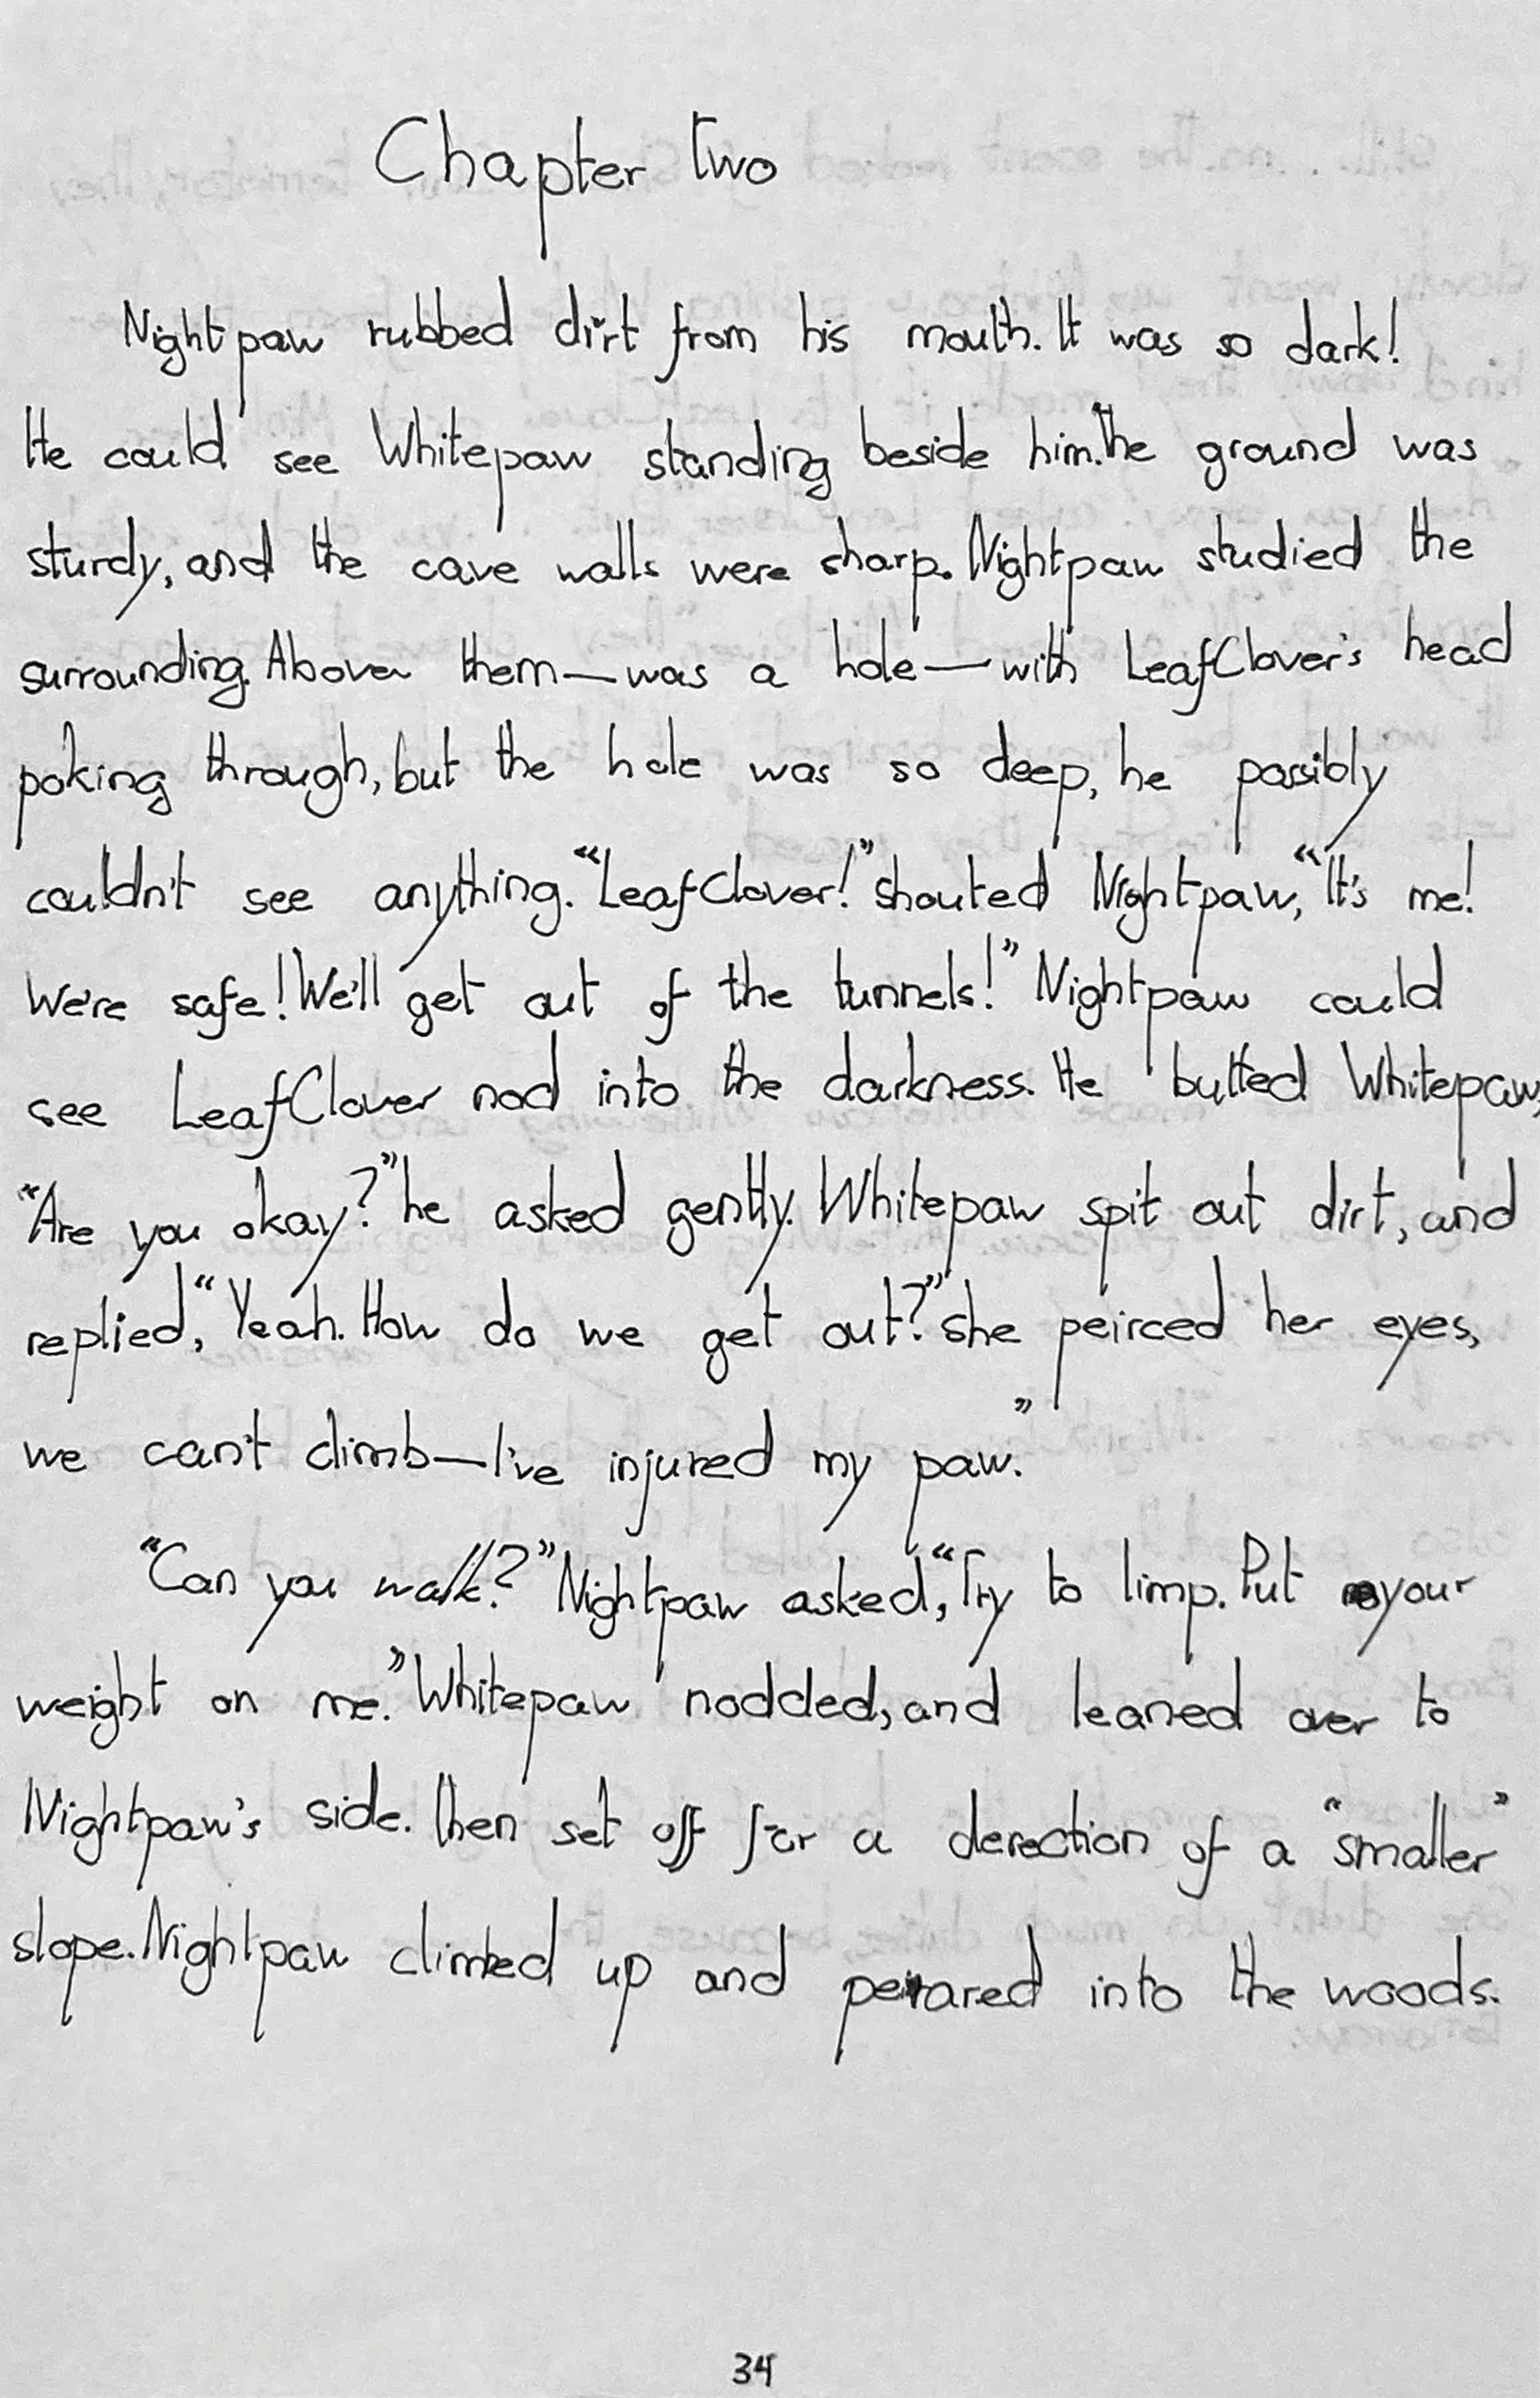 Chapter two
Nightpaw rubbed dirt from his mouth. It was so dark!
He could see Whitepaw standing beside him. The ground was
sturdy, and the cave walls were sharp. Nightpaw studied the
surrounding. Above them—was a hole—with LeafClover's head
poking through, but the hole was so deep, he possibly
couldn't see anything. “LeafClover!” shouted Nightpaw, “It's me!
We're safe! We'll get out of the tunnels!” Nightpaw could
see LeafClover nod into the darkness. He butted Whitepaw,
“Are you okay?” he asked gently. Whitepaw spit out dirt, and
replied, “Yeah. How do we get out?” she peirced her eyes,
we can't climb—I've injured my paw.”
“Can you walk?” Nightpaw asked, “Try to limp. Put your
weight on me.” Whitepaw nodded, and leaned over to
Nightpaw's side. Then set off for a derection of a “smaller”
slope. Nightpaw climbed up and into the woods.
34